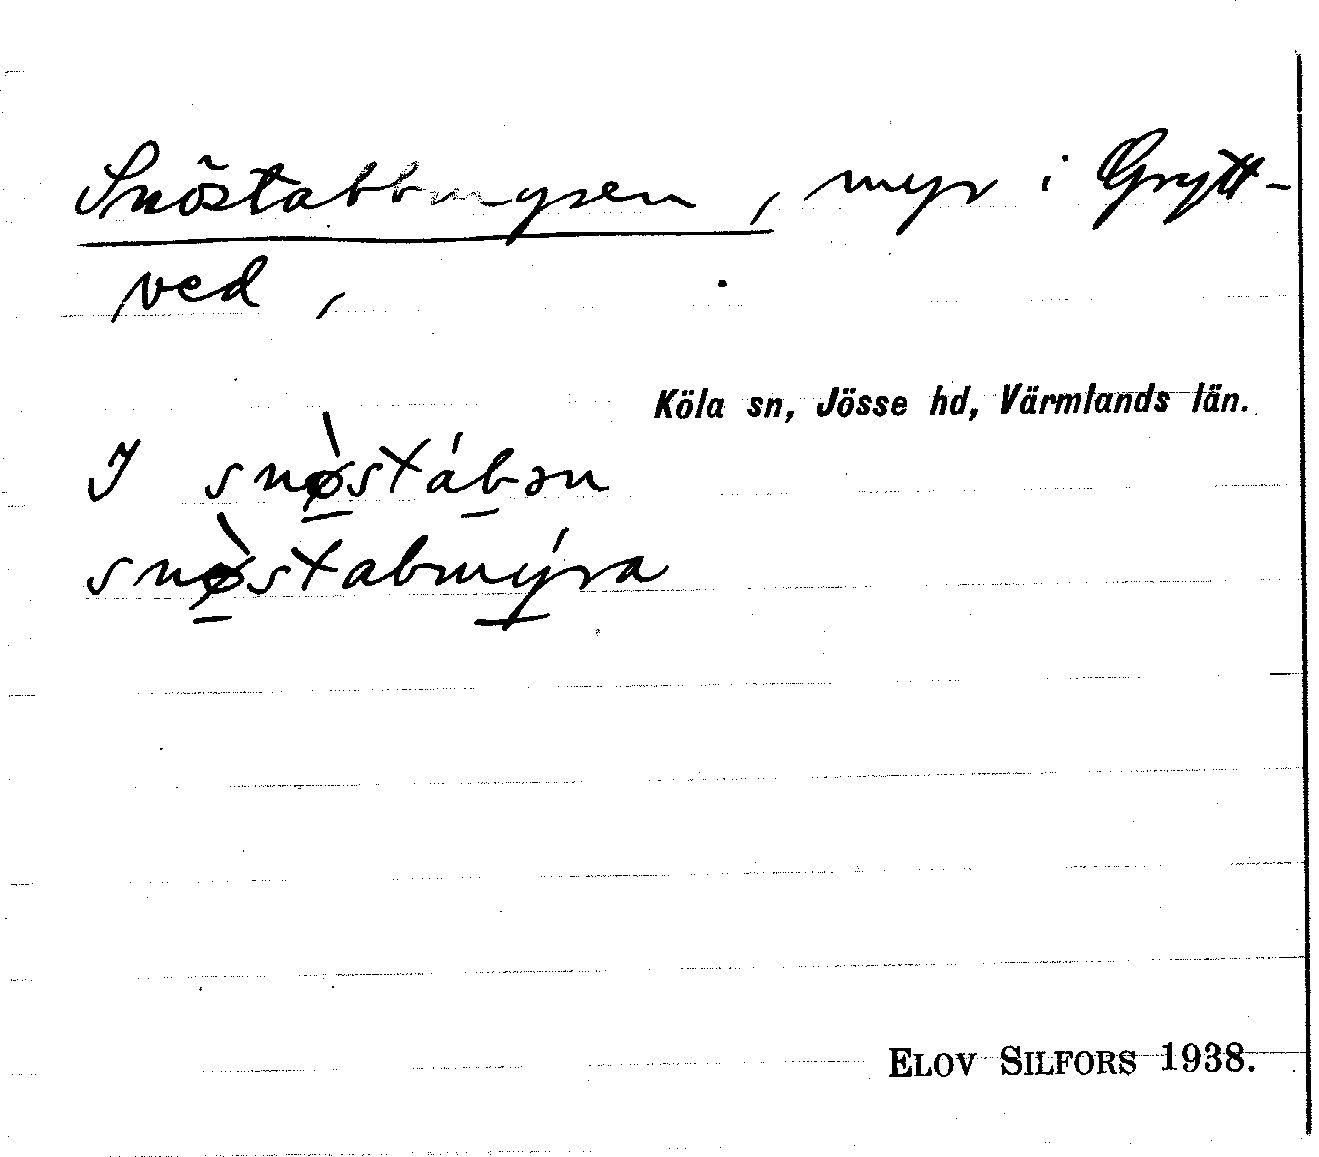 Snöstabbmyren, myr i Grytt-
ved,
Köla sn, Jösse hd, Värmlands län.
I snø̀stábən
snø̀stabmýra
ELOV SILFORS 1938.